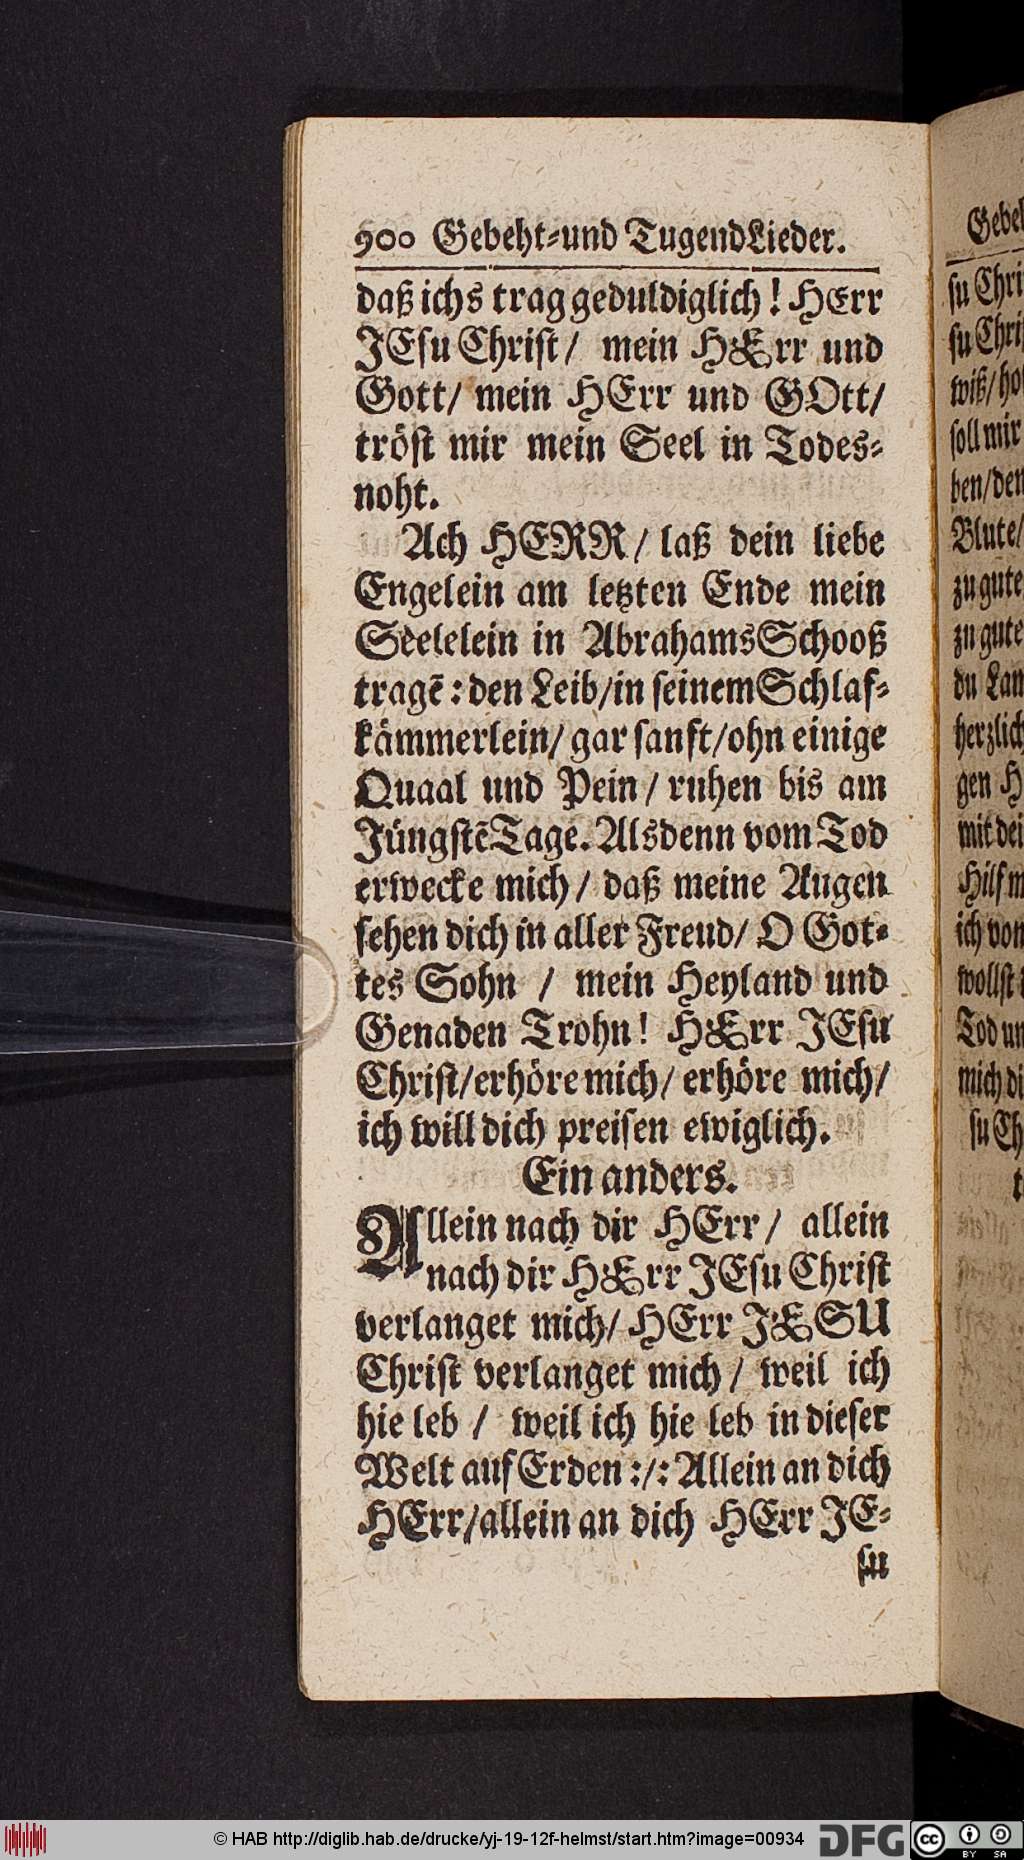 900 Gebeht-und TugendLieder.
daß ichs trag geduldiglich! HErr
JEsu Christ/ mein HErr und
Gott/ mein HErr und GOtt/
tröst mir mein Seel in Todes-
noht.
Ach HERR/ laß dein liebe
Engelein am letzten Ende mein
Seelelein in AbrahamsSchooß
tragē: den Leib/in seinem Schlaf-
kämmerlein/ gar sanft/ohn einige
Quaal und Pein/ ruhen bis am
JüngstēTage. Alsdenn vom Tod
erwecke mich/ daß meine Augen
sehen dich in aller Freud/ O Got-
tes Sohn / mein Heyland und
Genaden Trohn! HErr JEsu
Christ/erhöre mich/ erhöre mich/
ich will dich preisen ewiglich.
Ein anders.
Allein nach dir HErr/ allein
nach dir HErr JEsu Christ
verlanget mich/ HErr JESU
Christ verlanget mich/ weil ich
hie leb / weil ich hie leb in dieser
Welt auf Erden :/: Allein an dich
HErr/allein an dich HErr JE-
su
Gebeh
su Chri
su Chris
wiß/ho
soll mir
ben/den
Blute/
zu gute
zu gute
du Lam
herzlich
gen H
mit dei
Hilf m
ich von
wollst
Tod un
mich di
su Ch
t
© HAB http://diglib.hab.de/drucke/yj-19-12f-helmst/start.htm?image=00934
DFG
cc
BY SA